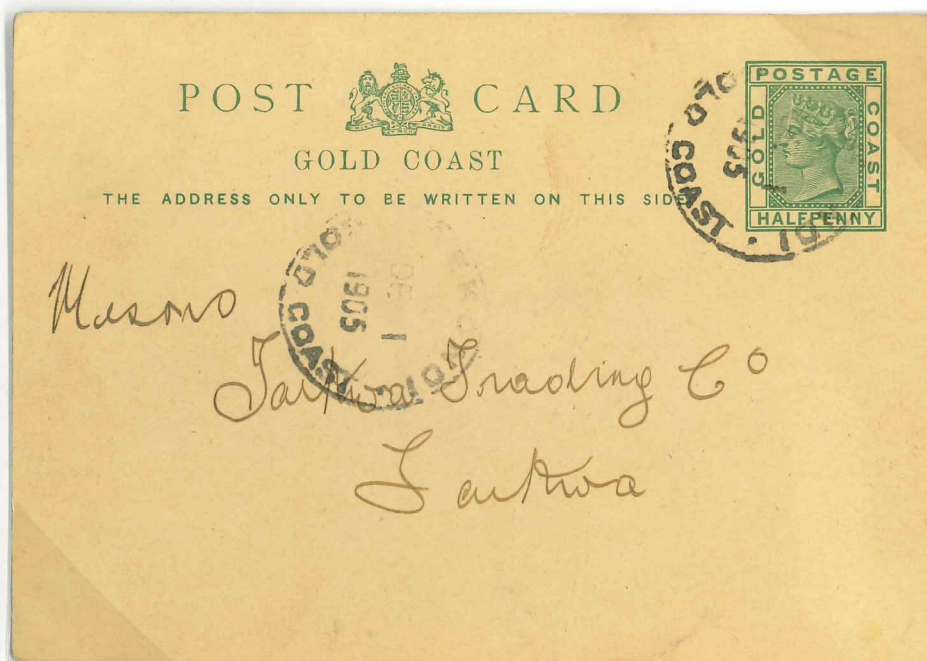 POST CARD
GOLD COAST
THE ADDRESS ONLY TO BE WRITTEN ON THIS SIDE
POSTAGE
GOLD
COAST
HALFPENNY
GOLD COAST
1
1905
GOLD COAST
DE
1
1905
Messrs
Tarkwa Trading Co
Tarkwa